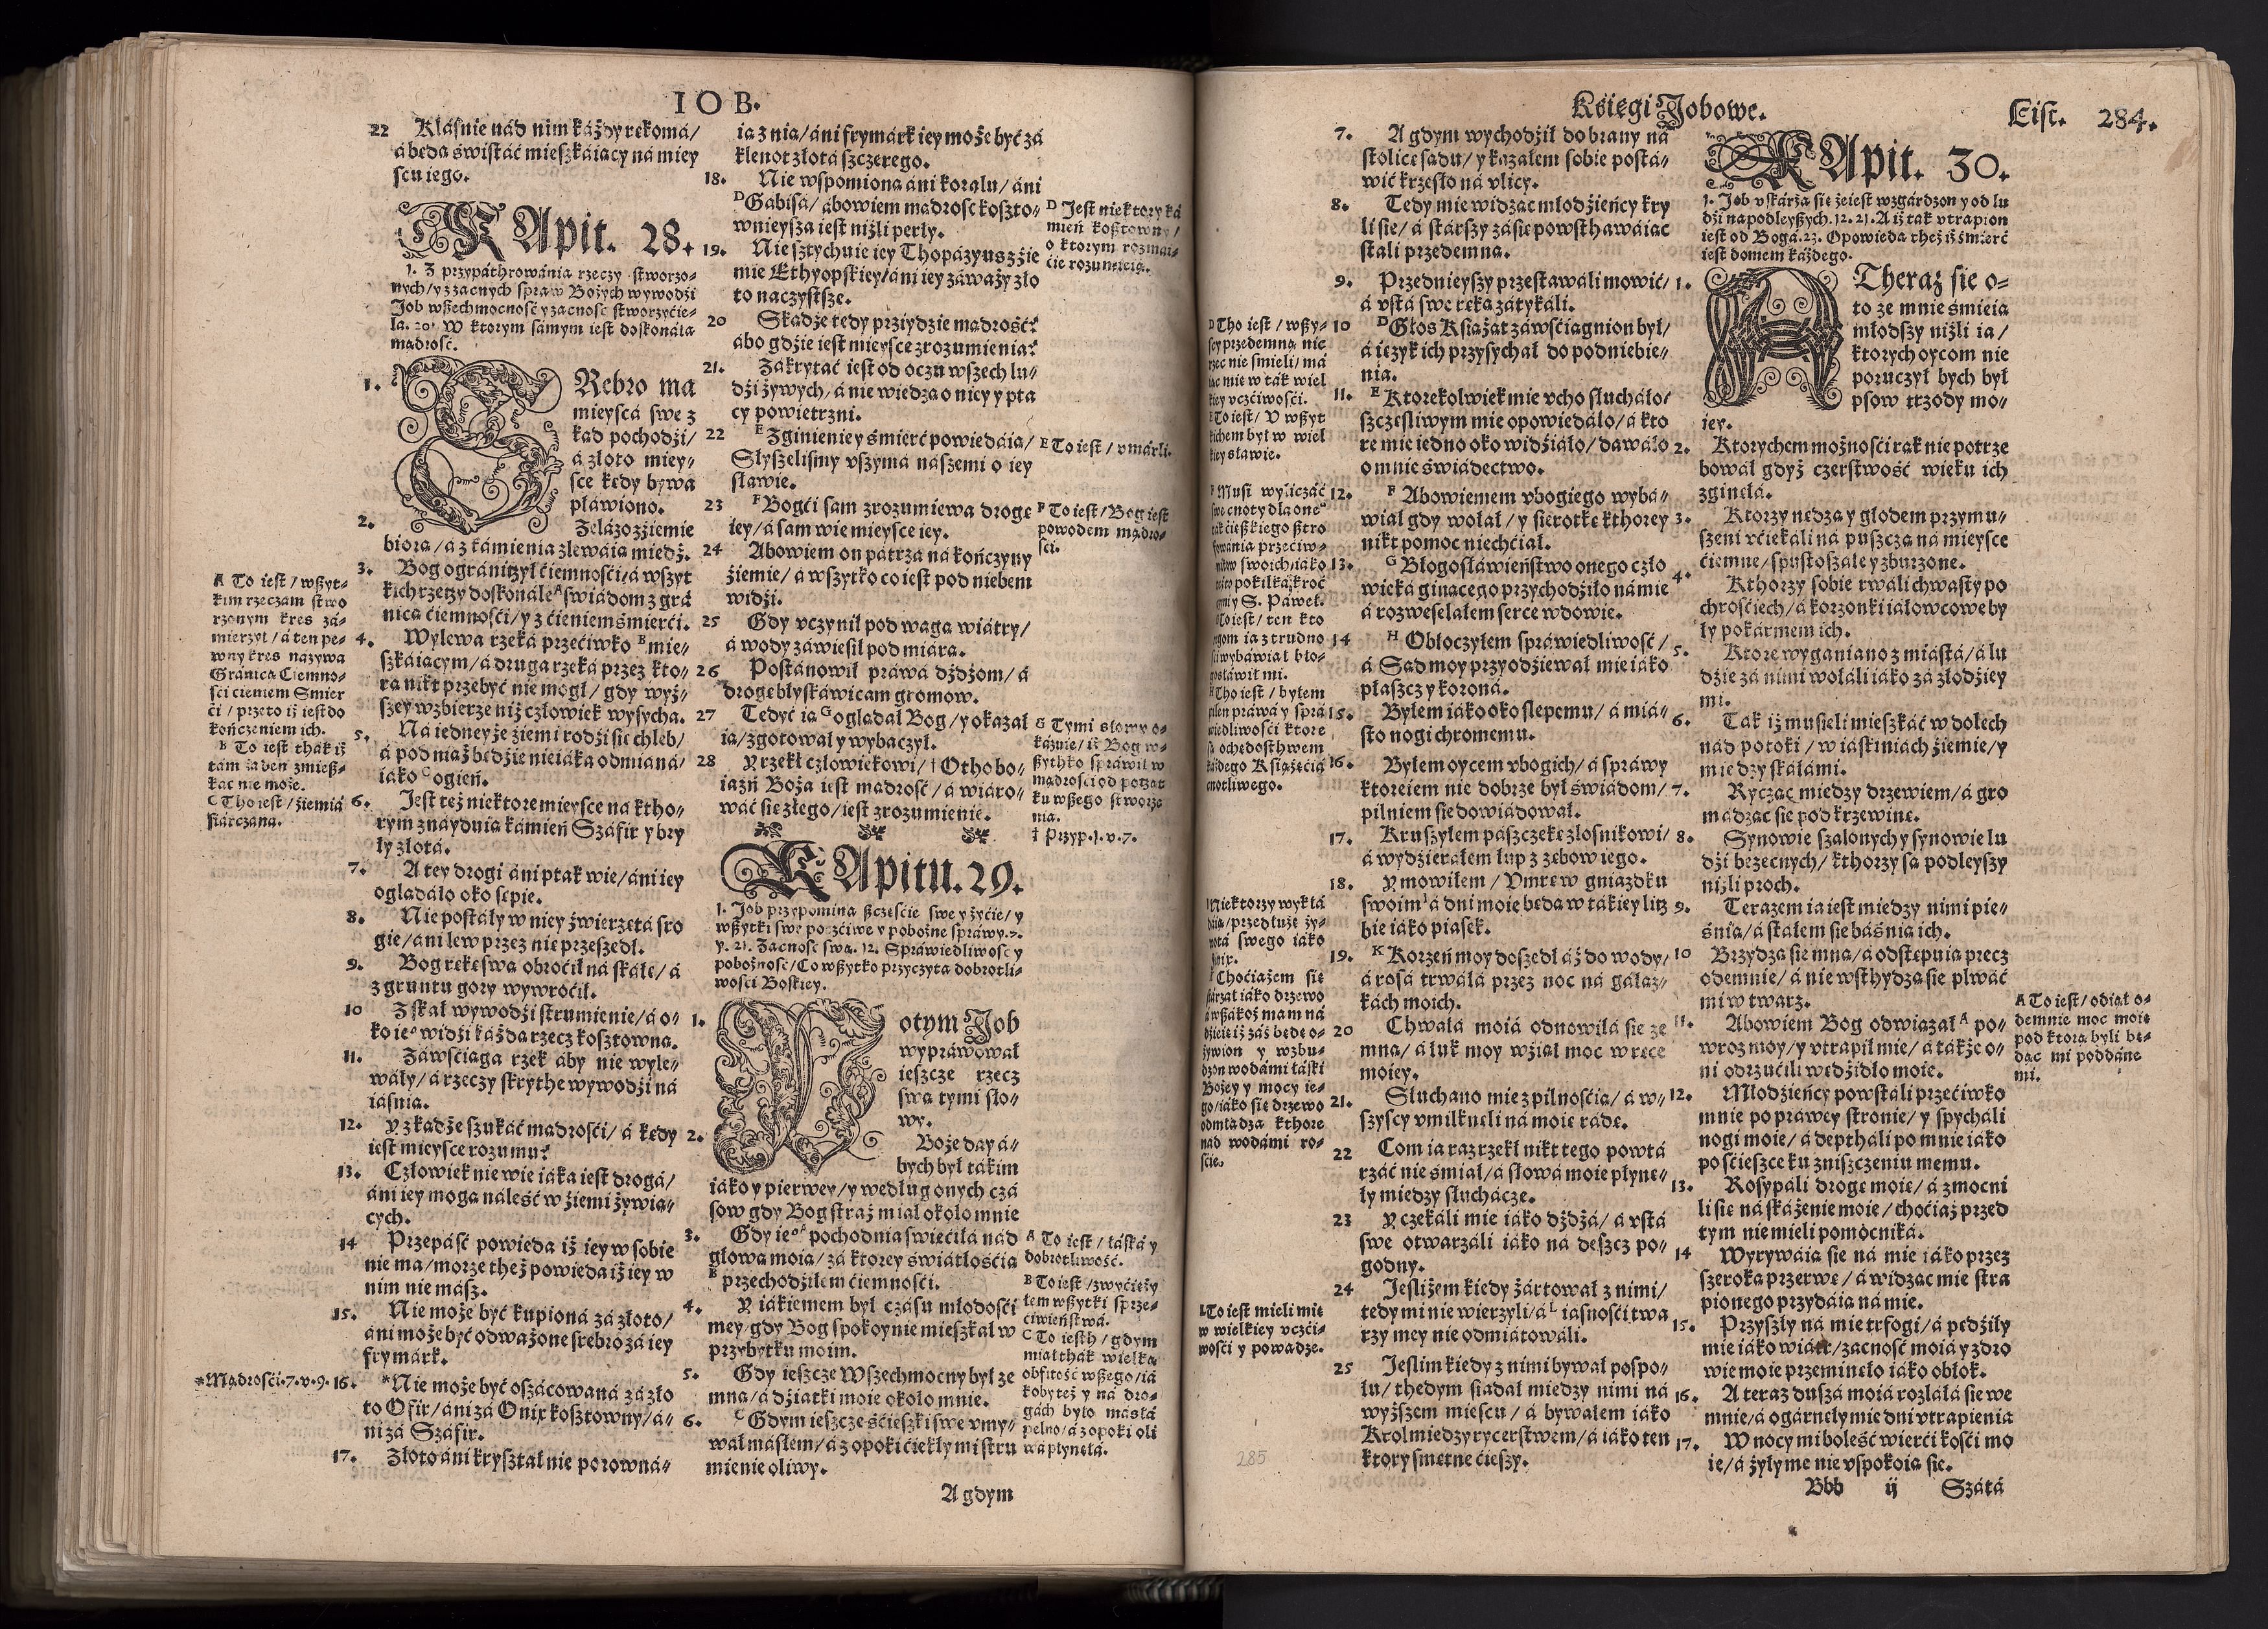 IOB.
22 Klásnie nád nim káżdy rękomá/
á będą świstáć mieszkáiący ná miey
scu iego.
KApit. 28.
1. Z przypáthrowánia rzeczy stworzo-
nych/ y z zacnych spraw Bożych wywodzi
Job wszechmocność y zacność stworzyćie-
la. 20. W ktorym sámym iest doskonáła
mądrość.
1. SRebro ma
mieyscá swe z
kąd pochodźi/
á złoto miey-
sce kędy bywa
płáwiono.
2. Żelázo z źiemie
biorą/ á z kámienia zlewáią miedź.
3. Bog ográniczył ćiemnośći/ á wszyt
kich rzeczy doskonále A świádom z grá
nicą ćiemnośći/ y z ćieniem śmierći.
4. Wylewa rzeká przećiwko B mie-
szkáiącym/ á druga rzeká przez kto-
rą nikt przebyć nie mogł/ gdy wyż-
szey wzbierze niż człowiek wysycha.
5. Ná iedneyże źiemi rodźi się chleb/
á pod máż będźie nieiáka odmiáná/
iáko C ogień.
6. Jest też niektore mieysce na ktho-
rym znáyduią kámień Száfir y bry
ły złotá.
7. A tey drogi áni ptak wie/ áni iey
oglądáło oko sępie.
8. Nie postáły w niey źwierzętá sro
gie/ áni lew przez nie przeszedł.
9. Bog rękę swą obroćił ná skáłę/ á
z gruntu gory wywroćił.
10 Z skał wywodźi strumienie/ á o-
ko ieo widźi káżdą rzecz kosztowną.
11. Záwśćiąga rzek áby nie wyle-
wáły/ á rzeczy skrythe wywodźi ná
iáśnią.
12. Y zkądże szukáć mądrośći/ á kędy
iest mieysce rozumu?
13. Człowiek nie wie iáka iest drogá/
áni iey mogą náleść w źiemi żywią-
cych.
14 Przepáść powieda iż iey w sobie
nie ma/ morze theż powieda iż iey w
nim niemász.
15. Nie może być kupioná zá złoto/
áni może być odważone srebro zá iey
frymárk.
*Mądrośći. 7. v. 9. 16. *Nie może być oszácowaná zá zło
to Ofir/ áni zá Onix kosztowny/ á-
ni zá Száfir.
17. Złoto áni kryształ nie porowná-
A To iest/ wszyt-
kim rzeczam stwo
rzonym kres zá-
mierzył/ á ten pe-
wny kres nazywa
Gránicą Ciemno-
śći cieniem Smier
ći/ przeto iż iest do
kończeniem ich.
B To iest thák iż
tám żaden zmiesz-
kác nie może.
C Tho iest/ źiemiá
siárczana.
ia z nią/ áni frymárk iey może być zá
klenot złotá szczerego.
18. Nie wspomioną áni koralu/ áni
D Gábisá/ ábowiem mądrość koszto-
wnieysza iest niżli perły.
19. Nie sztychuie iey Thopázyus z źie
mie Ethyopskiey/ áni iey záważy zło
to naczystsze.
20 Skądże tedy przyidzie mądrość?
ábo gdźie iest mieysce zrozumienia?
21. Zákrytáć iest od oczu wszech lu-
dźi żywych/ á nie wiedzą o nicy y pta
cy powietrzni.
22 E Zginienie y śmierć powiedáią/
Słyszelismy vszymá nászemi o iey
sławie.
23 F Bogći sam zrozumiewa drogę
iey/ á sam wie mieysce iey.
24 Abowiem on pátrza ná kończyny
źiemie/ á wszytko co iest pod niebem
widźi.
25 Gdy vczynił pod wagą wiátry/
á wody záwiesił pod miárą.
26 Postánowił práwá dżdżom/ á
drogę błyskáwicam gromow.
27 Tedyć ią G oglądał Bog/ y okazał
ią/ zgotował y wybaczył.
28 Y rzekł człowiekowi/ † Otho bo-
iaźń Boża iest mądrość/ á wiáro-
wáć się złego/ iest zrozumienie.
D Jest niektory ká
mień kosztowny/
o ktorym rozmai-
ćie rozumieią.
E To iest/ vmárli.
F To iest/ Bog iest
powodem mądro-
śći.
G Tymi słowy o-
kázuie/ iż Bog w-
szythko spráwił w
mądrośći od począt
ku wszego stworze
nia.
† Przyp. 1. v. 7.
KApitu. 29.
1. Job przypomina szczęśćie swe y żyćie/ y
wszytki swe poczćiwe y pobożne spráwy. 7.
y. 21. Zacność swą. 12. Spráwiedliwość y
pobożność/ Co wszytko przyczyta dobrotli-
wośći Boskiey.
1. Potym Job
wypráwował
ieszcze rzecz
swą tymi sło-
wy.
2. Boże day á-
bych był tákim
iáko y pierwey/ y według onych czá
sow gdy Bog straż miał około mnie
3. Gdy ieo A pochodnia świećiłá nád
głową moią/ zá ktorey świátłośćią
B przechodźiłem ćiemnośći.
4. Y iákiemem był czásu młodośći
mey/ gdy Bog spokoynie mieszkał w
przybytku moim.
5. Gdy ieszcze Wszechmocny był ze
mną/ á dźiatki moie około mnie.
6. C Gdym ieszcze śćieszki swe vmy-
wał másłem/ á z opoki ćiekły mi stru
mienie oliwy.
A gdym
A To iest/ łáska y
dobrotliwość.
B To iest/ zwyćięży
łem wszytki sprze-
ćiwieństwá.
C To iesth/ gdym
miał thák wielką
obfitość wszego/ iá
koby też y ná dro-
gách było másłá
pełno/ á z opoki oli
wa płynęła.
Księgi Jobowe. List. 284.
7. A gdym wychodźił do brany ná
stolicę sądu/ y kazałem sobie postá-
wić krzesło ná vlicy.
8. Tedy mię widząc młodźieńcy kry
li się/ á stárszy zásię powsthawáiąc
stali przedemną.
9. Przednieyszy przestawáli mowić/
á vstá swe ręką zátykáli.
10 D Głos Książąt záwśćiągnion był/
á ięzyk ich przysychał do podniebie-
nia.
11. E Ktorekolwiek mię vcho słucháło/
szczęśliwym mię opowiedáło/ á kto
re mię iedno oko widźiáło/ dawáło
o mnie świádectwo.
12. F Abowiemem vbogiego wybá-
wiał gdy wołał/ y sierotkę kthorey
nikt pomoc niechćiał.
13. G Błogosłáwieństwo onego czło
wieká ginącego przychodźiło ná mię
á rozweselałem serce wdowie.
14 H Obłoczyłem spráwiedliwość/
á Sąd moy przyodźiewał mię iáko
płaszcz y koroná.
15. Byłem iáko oko ślepemu/ á miá-
sto nogi chromemu.
16. Byłem oycem vbogich/ á spráwy
ktoreiem nie dobrze był świádom/
pilniem się dowiádował.
17. Kruszyłem pászczekę złosnikowi/
á wydźierałem łup z zębow iego.
18. Y mowiłem/ Vmrę w gniazdku
swoim I á dni moie będą w tákiey licz
bie iáko piasek.
19. K Korzeń moy doszedł áż do wody/
á rosá trwáłá przez noc ná gáłąz-
kách moich.
20 Chwałá moiá odnowiłá się ze
mną/ á łuk moy wźiął moc w ręce
moiey.
21. Słuchano mię z pilnośćią/ á w-
szyscy vmilknęli ná moię rádę.
22 Com ia raz rzekł nikt tego powtá
rzáć nie śmiał/ á słowá moie płynę-
ły miedzy słucháczę.
23 Y czekáli mię iáko dżdżá/ á vstá
swe otwarzáli iáko ná deszcz po-
godny.
24 Jesliżem kiedy żártował z nimi/
tedy mi nie wierzyli/ á L iásnośći twa
rzy mey nie odmiátowáli.
25 Jeslim kiedy z nimi bywał pospo-
łu/ thedym siadał miedzy nimi ná
wyższem miescu/ á bywałem iáko
Krol miedzy rycerstwem/ á iáko ten
ktory smętne ćieszy.
D Tho iest/ wszy-
scy przedemną nic
rzec nie śmieli/ má
iąc mię w ták wiel
kiey vczćiwośći.
E To iest/ V wszyt
kichem był w wiel
kiey sławie.
F Musi wyliczáć
swe cnoty dla one
ták ćięszkiego sztro
fowánia przećiw-
nikow swoich/ iáko
pokilkákroć
y S. Páweł.
To iest/ ten kto
ia z trudno
wybáwiał bło-
gosłáwił mi.
H Tho iest/ byłem
pilen práwá y sprá
wiedliwośći ktore
są ochędosthwem
káżdego Książęcia
cnotliwego.
Niektorzy wykłá
dáią/ przedłużę ży-
wotá swego iáko
K Choćiażem się
stárzał iáko drzewo
wszákoż mam ná
dźieię iż záś będę o-
żywion y wzbu-
dzon wodámi łáski
Bożey y mocy ie-
go/ iáko się drzewo
odmładza kthore
nád wodámi ro-
śćie.
L To iest mieli mię
w wielkiey vczći-
wośći y powadze.
285
KApit. 30.
1. Job vskárża się że iest wzgárdzon y od lu
dźi napodleyszych. 12. 21. A iż ták vtrapion
iest od Bogá. 23. Opowieda theż iż śmierć
iest domem káżdego.
1. A Theraz się o-
to ze mnie śmieią
młodszy niżli ia/
ktorych oycom nie
poruczył bych był
psow trzody mo-
iey.
2. Ktorychem możnośći rąk nie potrze
bował gdyż czerstwość wieku ich
zginęłá.
3. Ktorzy nędzą y głodem przymu-
szeni vćiekáli ná puszczą ná mieysce
ćiemne/ spustoszáłe y zburzone.
4. Kthorzy sobie rwáli chwasty po
chrośćiech/ á korzonki iáłowcowe by
ły pokármem ich.
5. Ktore wyganiano z miástá/ á lu
dźie zá nimi wołáli iáko zá złodźiey
mi.
6. Ták iż musieli mieszkáć w dolech
nád potoki/ w iáskiniách źiemie/ y
miedzy skáłámi.
7. Rycząc miedzy drzewiem/ á gro
mádząc się pod krzewinę.
8. Synowie szalonych y synowie lu
dźi bezecnych/ kthorzy są podleyszy
niżli proch.
9. Terazem ia iest miedzy nimi pie-
śnią/ á stałem się báśnią ich.
10 Brzydzą się mną/ á odstępuią precz
odemnie/ á nie wsthydzą się plwáć
mi w twarz.
11. Abowiem Bog odwiązał A po-
wroz moy/ y vtrapił mię/ á tákże o-
ni odrzućili wędźidło moie.
12. Młodźieńcy powstáli przećiwko
mnie po práwey stronie/ y spycháli
nogi moie/ á depthali po mnie iáko
po śćieszce ku zniszczeniu memu.
13. Rosypáli drogę moię/ á zmocni
li się ná skáżenie moie/ choćiaż przed
tym nie mieli pomocniká.
14 Wyrywáią się ná mię iáko przez
szeroką przerwę/ á widząc mię stra
pionego przydáią ná mię.
15. Przyszły ná mię trfogi/ á pędźiły
mię iáko wiátr/ zacność moiá y zdro
wie moie przeminęło iáko obłok.
16. A teraz duszá moiá rozlałá się we
mnie/ á ogárnęły mię dni vtrapienia
17. W nocy mi boleść wierći kośći mo
ie/ á żyły me nie vspokoią się.
Bbb ij Szátá
A To iest/ odiął o-
demnie moc moię
pod ktorą byli bę-
dąc mi poddáne
mi.